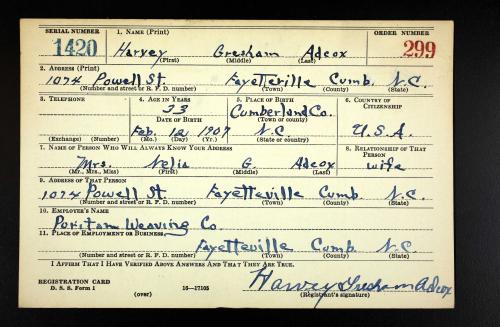 SERIAL NUMBER 1. NAME (Print) ORDER NUMBER
1420 Harvey Gresham Adcox 299
(First) (Middle) (Last)
2. ADDRESS (Print)
1074 Powell St. Fayetteville Cumb. N.C.
(Number and street or R. F. D. number) (Town) (County) (State)
3. TELEPHONE 4. AGE IN YEARS 5. PLACE OF BIRTH 6. COUNTRY OF
CITIZENSHIP
33 Cumberland Co.
DATE OF BIRTH (Town or county)
Feb. 12 1907 N.C. U.S.A.
(Exchange) (Number) (Mo.) (Day) (Yr.) (State or country)
7. NAME OF PERSON WHO WILL ALWAYS KNOW YOUR ADDRESS 8. RELATIONSHIP OF THAT
PERSON
Mrs. Nelia G. Adcox wife
(Mr., Mrs., Miss) (First) (Middle) (Last)
9. ADDRESS OF THAT PERSON
1074 Powell St Fayetteville Cumb. N.C.
(Number and street or R. F. D. number) (Town) (County) (State)
10. EMPLOYER'S NAME
Puritan Weaving Co.
11. PLACE OF EMPLOYMENT OR BUSINESS
Fayetteville Cumb. N.C.
(Number and street or R. F. D. number) (Town) (County) (State)
I AFFIRM THAT I HAVE VERIFIED ABOVE ANSWERS AND THAT THEY ARE TRUE.
Harvey Gresham Adcox
REGISTRATION CARD
D. S. S. Form 1 (over) 16—17105 (Registrant's signature)